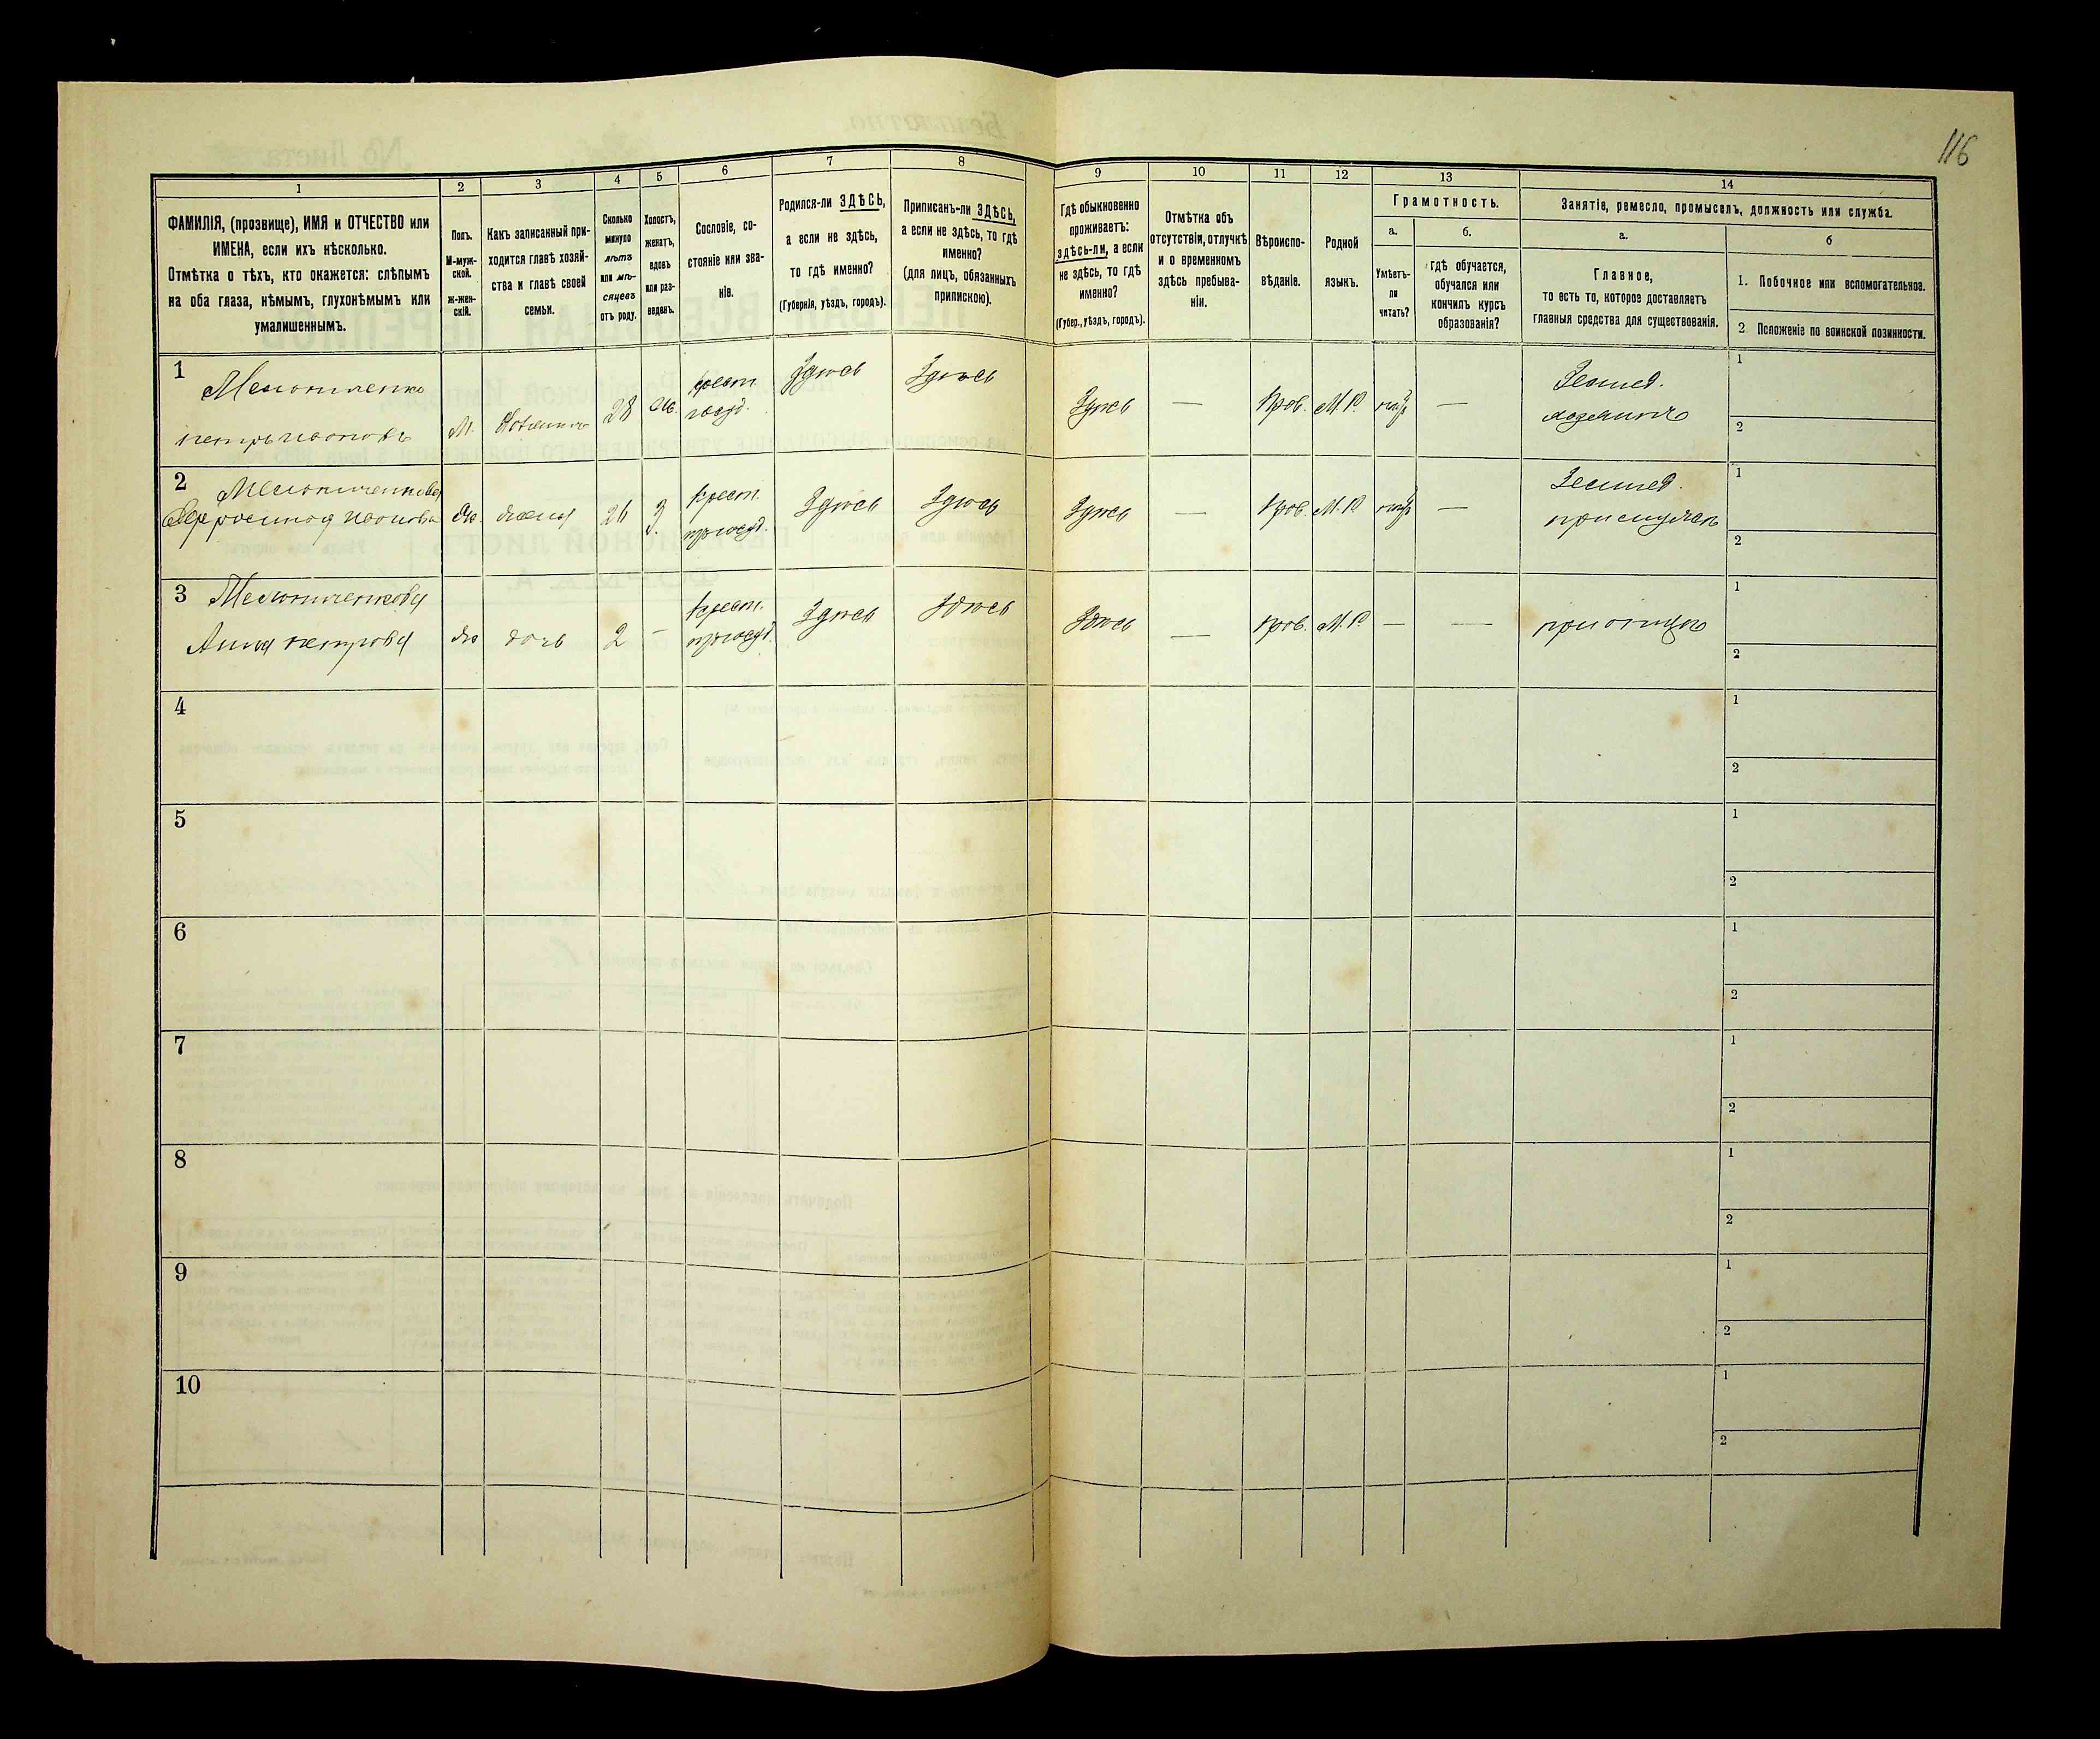 116
1
2
3
4
5
6
7
8
9
10
11
12
13
14
ФАМИЛІЯ, (прозвище), ИМЯ и ОТЧЕСТВО или
ИМЕНА, если ихъ нѣсколько.
Отмѣтка о тѣхъ, кто окажется: слѣпымъ
на оба глаза, нѣмымъ, глухонѣмымъ или
умалишеннымъ.
Полъ.
М-муж-
ской.
ж-жен-
скій.
Какъ записанный при-
ходится главѣ хозяй-
ства и главѣ своей
семьи.
Сколько
минуло
лѣтъ
или мѣ-
сяцевъ
отъ роду.
Холостъ,
женатъ,
вдовъ
или раз-
веденъ.
Сословіе, со-
стояніе или зва-
ніе.
Родился-ли ЗДѢСЬ,
а если не здѣсь,
то гдѣ именно?
(Губернія, уѣздъ, городъ).
Приписанъ-ли ЗДѢСЬ,
а если не здѣсь, то гдѣ
именно?
(для лицъ, обязанныхъ
припискою).
Гдѣ обыкновенно
проживаетъ:
здѣсь-ли, а если
не здѣсь, то гдѣ
именно?
(Губер., уѣздъ, городъ).
Отмѣтка объ
отсутствіи, отлучкѣ
и о временномъ
здѣсь пребыва-
ніи.
Вѣроиспо-
вѣданіе.
Родной
языкъ.
Грамотность.
а.
Умѣетъ-
ли
читать?
б.
Гдѣ обучается,
обучался или
кончилъ курсъ
образованія?
Занятіе, ремесло, промыселъ, должность или служба.
а.
Главное,
то есть то, которое доставляетъ
главныя средства для существованія.
б
1. Побочное или вспомогательное.
2. Положеніе по воинской повинности.
1
петръ ивановъ
М.
28
крест.
Здѣсь
Здѣсь
Здѣсь
—
Прав.
М.Р.
—
Землед.
хозяинъ
1
2
2
Ивановна
жена
26
крест.
Здѣсь
Здѣсь
Здѣсь
—
Прав.
М.Р.
—
Землед.
при мужѣ
1
2
3
Анна петрова
дочь
2
—
крест.
Здѣсь
Здѣсь
Здѣсь
—
Прав.
М.Р.
—
—
при отцѣ
1
2
4
1
2
5
1
2
6
1
2
7
1
2
8
1
2
9
1
2
10
1
2